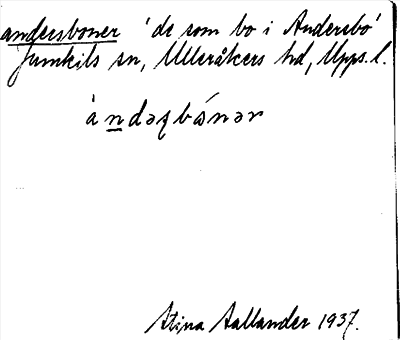 andersboner 'de som bo i Andersbo'
Jumkils sn, Ulleråkers hd, Upps. l.
Stina Aallander 1937.